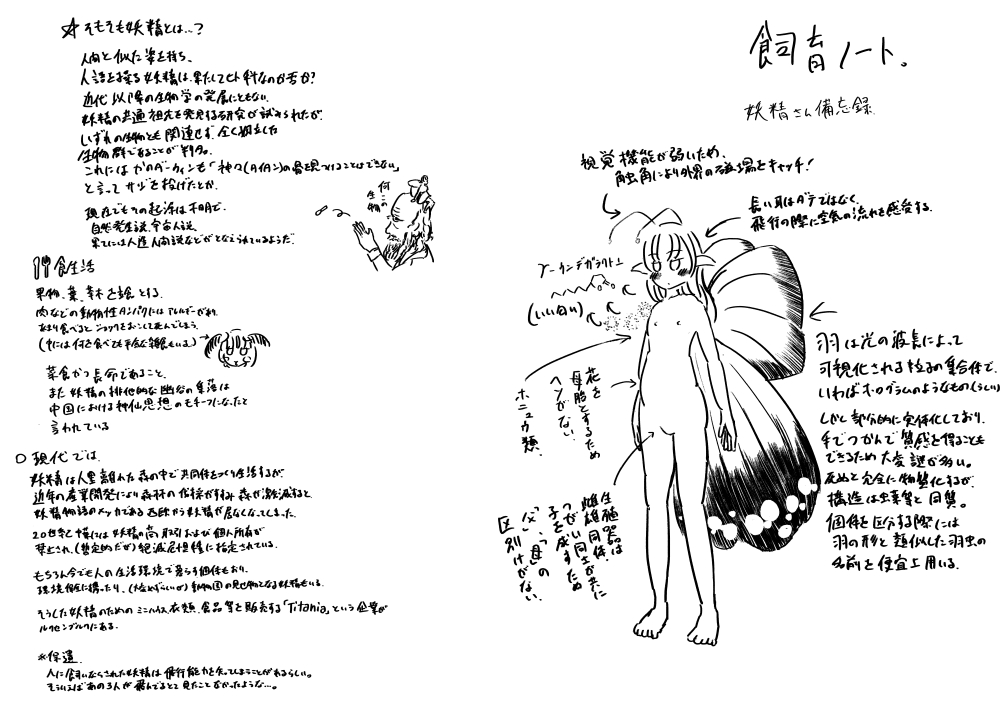 飼育ノート。
妖精さん備忘録
☆そもそも妖精とは…?
人間と似た姿を持ち、
人語を操る妖精は果たしてヒト科なのか否か?
近代以降の生物学の発展にともない
妖精の共通祖先を発見する研究が試みられたが
いずれの生物とも関連せず、全く独立した
生物群であることが判明。
これにはかのダーウィンも「神々(ダイロン)の
と言ってサジを投げたとか。
現在でもその起源は不明で、
自然発生説、宇宙人説、
果てには人造人間説などがとなえられているようだ
何この
生物
食生活
果物、葉、草木を主食とする。
肉などの動物性タンパクにはアレルギーがあり、
あまり食べるとショックをおこして死んでしまう。
(中には何を食べても平気な雑食もいる)→
菜食かつ長命であること、
また妖精の排他的な幽谷の集落は
中国における神仙思想のモチーフになったと
言われている
○現代では
妖精は人里離れた森の中で共同体をつくり生活するが
近年の産業開発により森林の伐採がすすみ森が激減すると
妖精物語のメッカである西欧から妖精が居なくなってしまった。
20世紀中盤には妖精の商取引および個人所有が
禁止され、(暫定的だが)絶滅危惧種に指定されている。
もちろん今でも人の生活環境で暮らす個体もおり、
環境保全に携ったり、(大変めずらしいが)動物園の見せ物となる妖精もいる。
そうした妖精のためのミニハウス、衣類、食品等を販売する「Titania」という企業が
ルクセンブルクにある。
※補遺
人に飼いならされた妖精は飛行能力を失ってしまうことがあるらしい。
そういえばあの3人が飛んでるとこ見たことなかったような…。
視覚機能が弱いため、
触角により外界の磁場をキャッチ!
長い耳はダテではなく、
飛行の際に空気の流れを感合する。
γ-ウンデカラクトン
(いい匂い)
ホニュウ類
花を
母胎とするため
ヘソがない
生殖器は
雌雄同体。
つがい同士が共に
子を成すため
「父」「母」の
区別けがない。
羽は光の波長によって
可視化される粒子の集合体で、
いわばホログラムのようなもの(らしい)
しかし部分的に実体化しており、
手でつかんで質感を得ることも
できるため大変謎が多い。
死ぬと完全に物質化するが
構造は虫等と同質。
個体を区分する際には
羽の形と類似した羽虫の
名前を便宜上用いる。